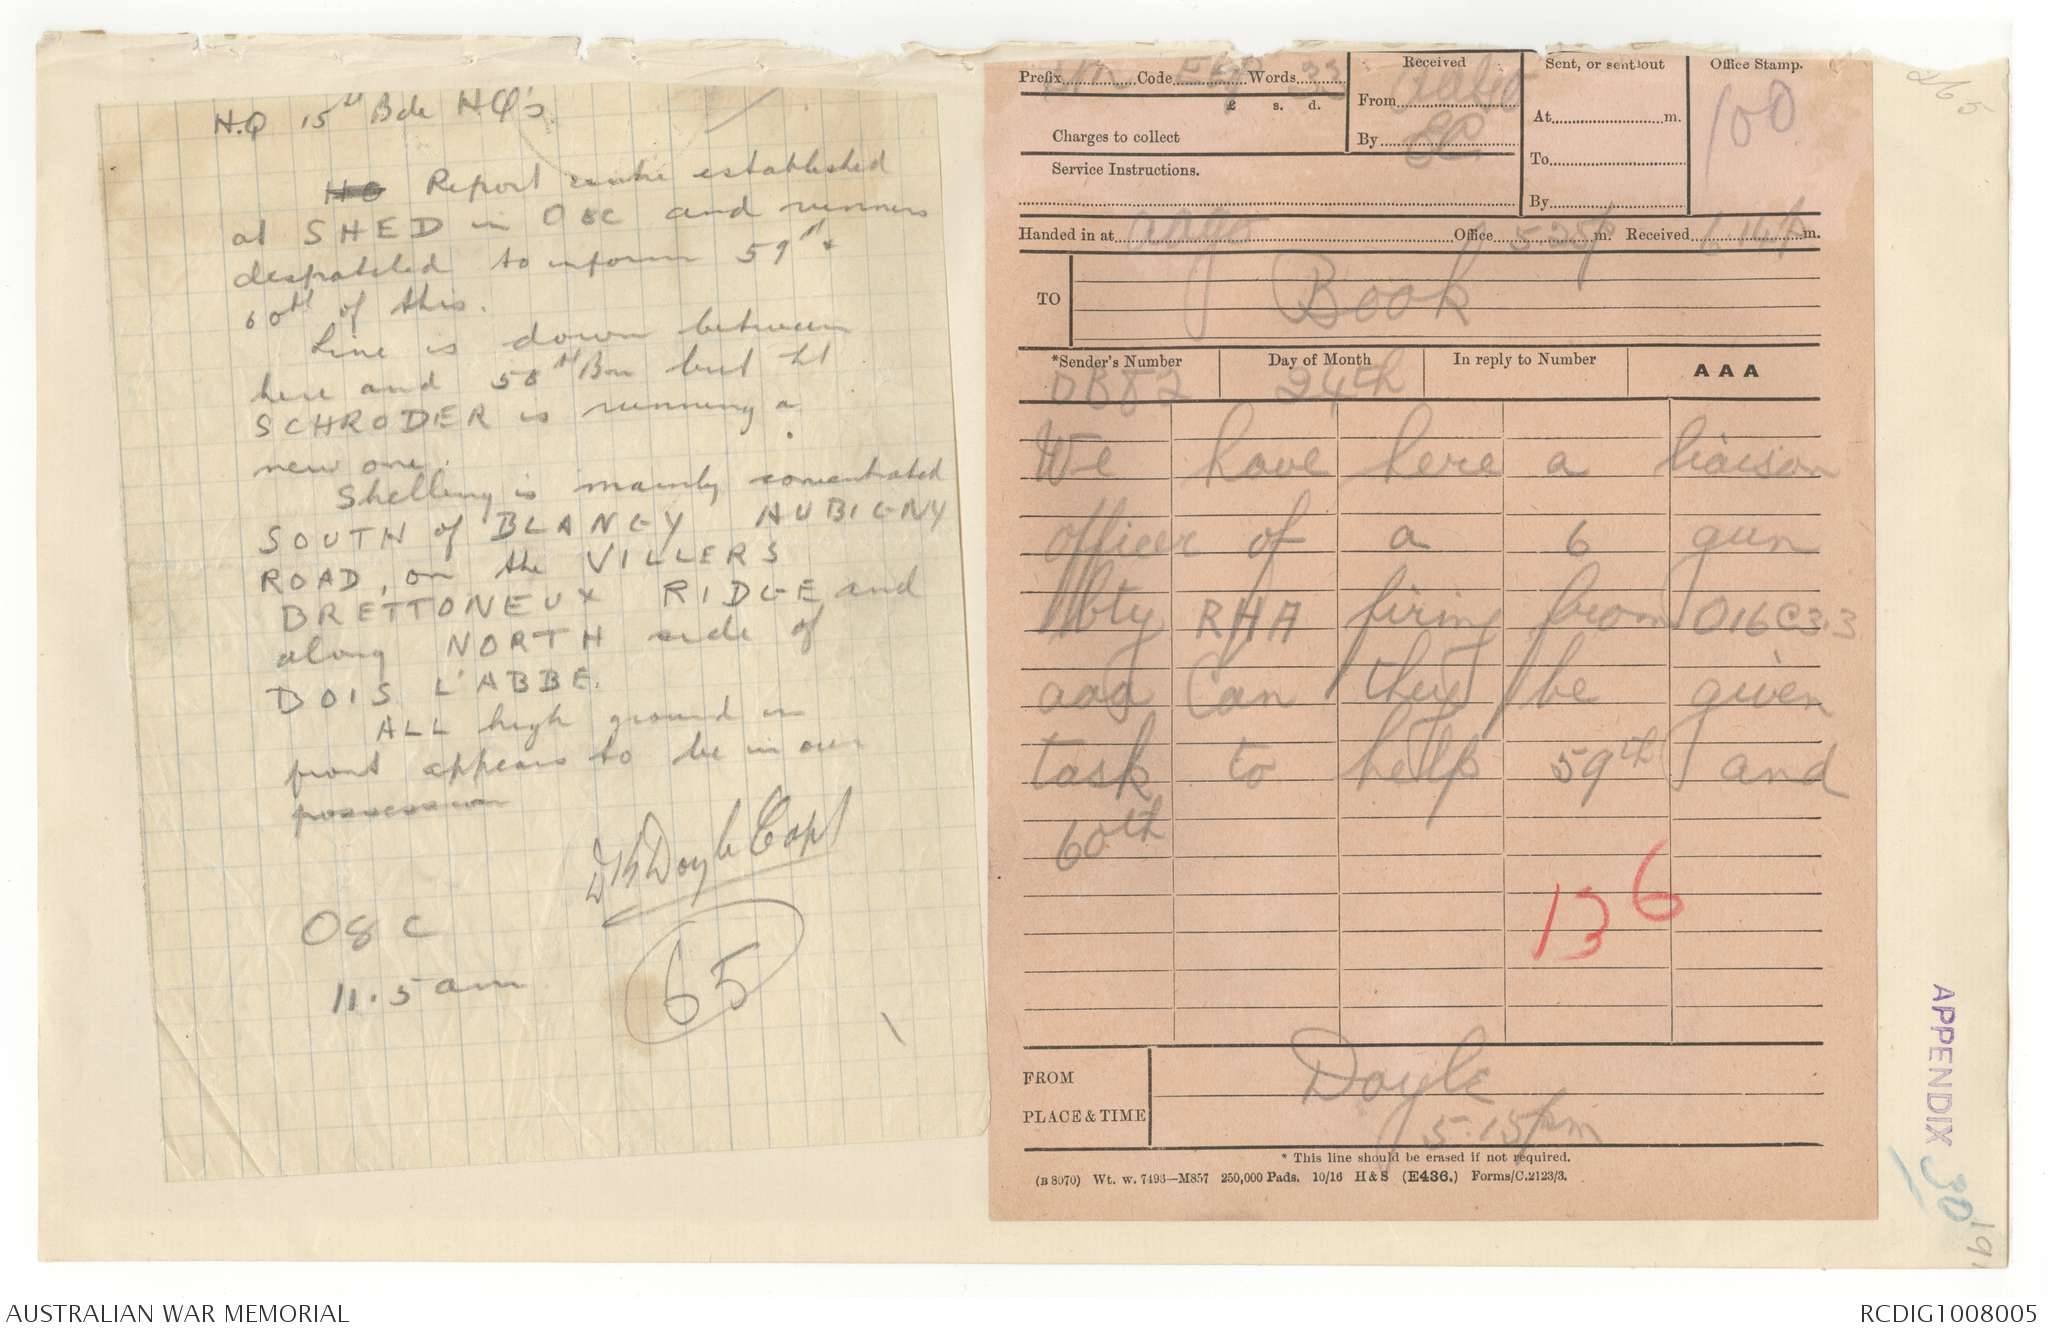 H.Q 15th Bde HQ's
HQ Report centre established
at SHED in O8C and runners
despatched to inform 59th &
60th of this.
Line is down between
here and 58th Bn but Lt
SCHRODER is running a
new one.
Shelling is mainly concentrated
SOUTH of BLANGY AUBIGNY
ROAD, on the VILLERS
BRETTONEUX RIDGE and
along NORTH side of
BOIS L'ABBE.
ALL high ground in
front appears to be in our
possession
Doyle Capt
O8C
11.5 am
65
Prefix Code Words 33
£ s. d.
Charges to collect
Service Instructions.
Received
From
By
Sent, or sent out
At m.
To
By
Office Stamp.
100
Handed in at Office 5.25p m. Received m.
TO Book
*Sender's Number Day of Month In reply to Number AAA
DB52 24th
We have here a liaison
officer of a 6 gun
bty RHA firing from O16C3.3
aaa Can they be given
task to help 59th and
60th
136
FROM Doyle
PLACE & TIME 5.15pm
* This line should be erased if not required.
(B 8070) Wt. w. 7493—M857 250,000 Pads. 10/16 H & S (E436.) Forms/C.2123/3.
265
APPENDIX 30
AUSTRALIAN WAR MEMORIAL
RCDIG1008005